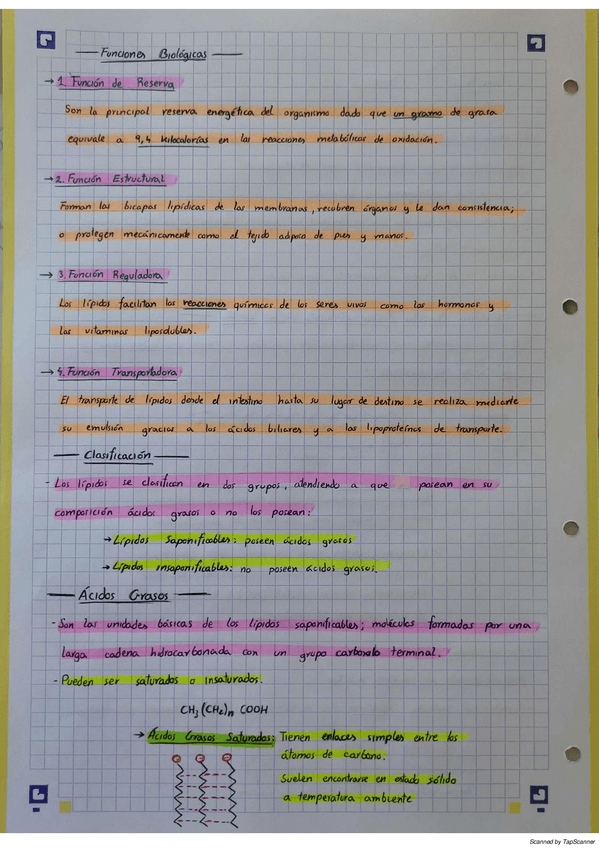 Funciones Biológicas
→ 1. Función de Reserva
Son la principal reserva energética del organismo dado que un gramo de grasa
equivale a 9,4 kilocalorías en las reacciones metabólicas de oxidación.
→ 2. Función Estructural
Forman las bicapas lipídicas de las membranas, recubren órganos y le dan consistencia;
o protegen mecánicamente como el tejido adiposo de pies y manos.
→ 3. Función Reguladora
Los lípidos facilitan las reacciones químicas de los seres vivos como las hormonas y
las vitaminas liposolubles.
→ 4. Función Transportadora
El transporte de lípidos desde el intestino hasta su lugar de destino se realiza mediante
su emulsión gracias a los ácidos biliares y a las lipoproteínas de transporte.
Clasificación
- Los lípidos se clasifican en dos grupos, atendiendo a que posean en su
composición ácidos grasos o no los posean:
→ Lípidos Saponificables: poseen ácidos grasos
→ Lípidos insaponificables: no poseen ácidos grasos.
Ácidos Grasos
- Son las unidades básicas de los lípidos saponificables; moléculas formadas por una
larga cadena hidrocarbonada con un grupo carboxilo terminal.
- Pueden ser saturados o insaturados.
CH3 (CH2)n COOH
→ Ácidos Grasos Saturados: Tienen enlaces simples entre los
átomos de carbono.
Suelen encontrarse en estado sólido
a temperatura ambiente
Scanned by TapScanner